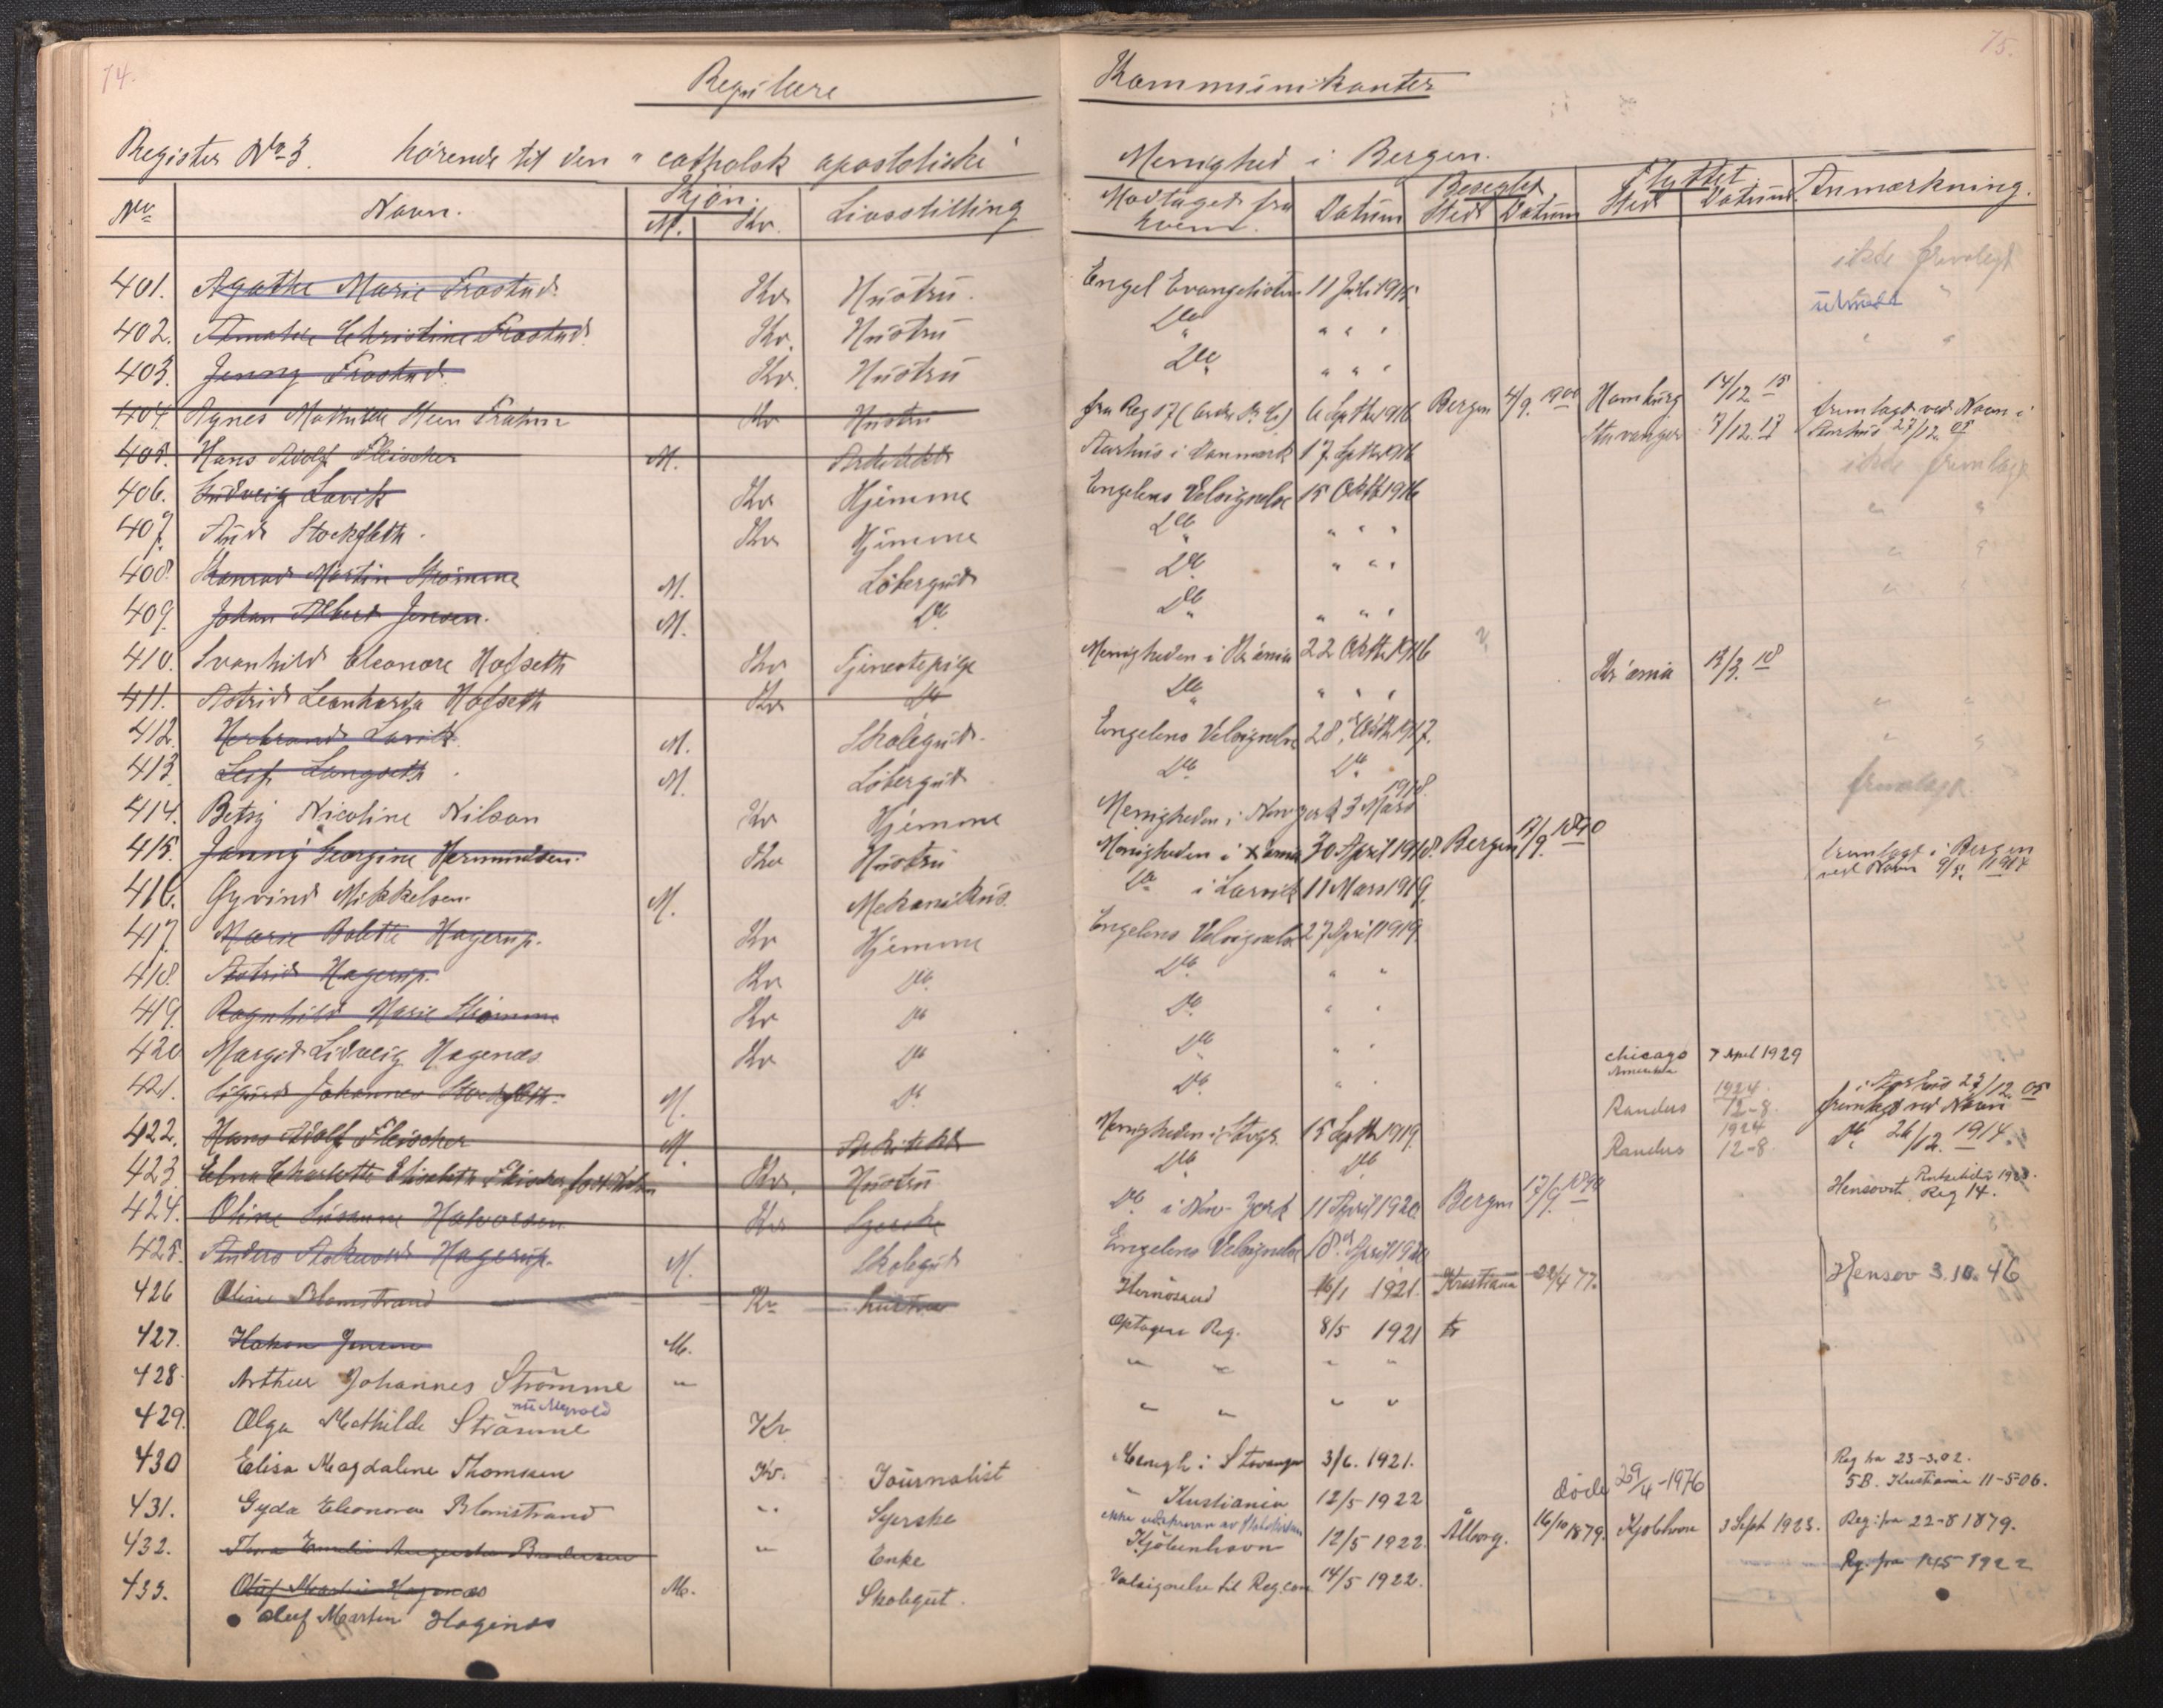 74.
75.
Regulære Kommunikanter
Register No 3. hørende til den "catholsk apostoliske" Menighed i Bergen.
No Navn. Kjøn. M. Kv. Livsstilling Modtaget fra hvem. Datum Beseglet Sted Datum Flyttet Sted Datum Anmærkning.
ikke fremlagt
401. Agathe Marie Frostad Kv Hustru. Engel Evangelisten 11 Juli 1915 utmeldt "
402. Christine Frostad Kv. Hustru Do " " " " "
403. Jenny Frostad Kv. Hustru Do " " "
404. Agnes Kv Hustru fra Reg 17 6 Septbr 1916 Bergen 4/9. 1900 Hamburg 14/12 15
405. Hans Adolf Fleischer M. Arkitekt Aarhus i Danmark 17 Septbr 1916 Stavanger 7/12. 17 fremlagt ved Navn i Aarhus 27/12. 05
406. Lavik Kv Hjemme Engelens Velsignelse 15 Oktb 1916 ikke fremlagt
407. Stockfleth. Kv Hjemme Do " " " " "
408. Konrad Martin Strömme M. Løbergut Do " " " " "
409. Johan Albert Jensen. M. Do Do " " " " "
410. Svanhild Eleonore Hofseth Kv Tjenestepige Menigheden i Kr.ania 22 Oktbr 1916 Kr.ania 13/3. 18
411. Astrid Leonharda Hofseth Kv Do Do " " " " "
412. Lavik M. Skolegut Engelens Velsignelse 28 Oktb 1917. " "
413. Leif Langseth M. Løbergut Do Do fremlagt
414. Betsy Nicoline Nilson Kv Hjemme Menigheden i New york 3 Mars 1918.
415. Jenny Georgine Hermundsen. Kv Hustru Menigheden i Xania 30 April 1918. Bergen 17/9. 1890 fremlagt i Bergen ved Navn 9/5. 1914
416. Øyvind Mikkelsen. M. Mekanikus. Do i Larvik 11 Mars 1919.
417. Marie Bolette Hagerup. Kv Hjemme Engelens Velsignelse 27 April 1919.
418. Astrid Hagerup. Kv Do. Do. " "
419. Ragnhild Marie Strömme Kv Do Do. " "
420 Margit Lidveig Hagenæs Kv Do Do " " Chicago Amerika 7 April 1929
421. Sigurd Johannes Stockfleth. M. Do. Do. " "
422. Hans Adolf Fleischer M. Arkitekt Menigheden i Stvgr. 15 Septbr 1919. Randers 1924 12-8. i Aarhus 27/12. 05 fremlagt ved Navn
423. Charlotte Elisabeth Fleischer Kv. Hustru Do Do Randers 1924 12-8 Do 26/12. 1914.
424. Oline Susanne Halvorsen Kv Syerske Do i New-York 11 April 1920 Bergen 17/9. Hensovet. Reg 14.
425. Anders Hagerup. M. Skolegut Engelens Velsignelse 18 April 1920
426 Oline Blomstrand Kv hustru Hernösand 16/1 1921. Kristiania 22/4 77. Hensov 3.10.46
427. Hakon Jensen M. Optagen Reg. 8/5 1921
428. Arthur Johannes Strömme " " " " "
429. Olga Mathilde Strömme Kv " " " "
430 Elisa Magdalene Thomsen Kv. Journalist Menigh i Stavanger 3/6. 1921. Reg fra 23-3.02. 5B. Kristiania 11-5 06.
431. Gyda Eleonora Blomstrand " Syerske " Kristiania 12/5 1922 döde 29/4-1976
432. Augusta " Enke Kjøbenhavn 12/5 1922 Ålborg. 16/10 1879. 3 Sept 1923. Reg: fra 22-8 1879.
433. Oluf Martin Hagenæs M. Skolegut. Velsignelse til Reg.com 14/5 1922. Rg. fra 14.5 1922
Oluf Martin Hagenæs